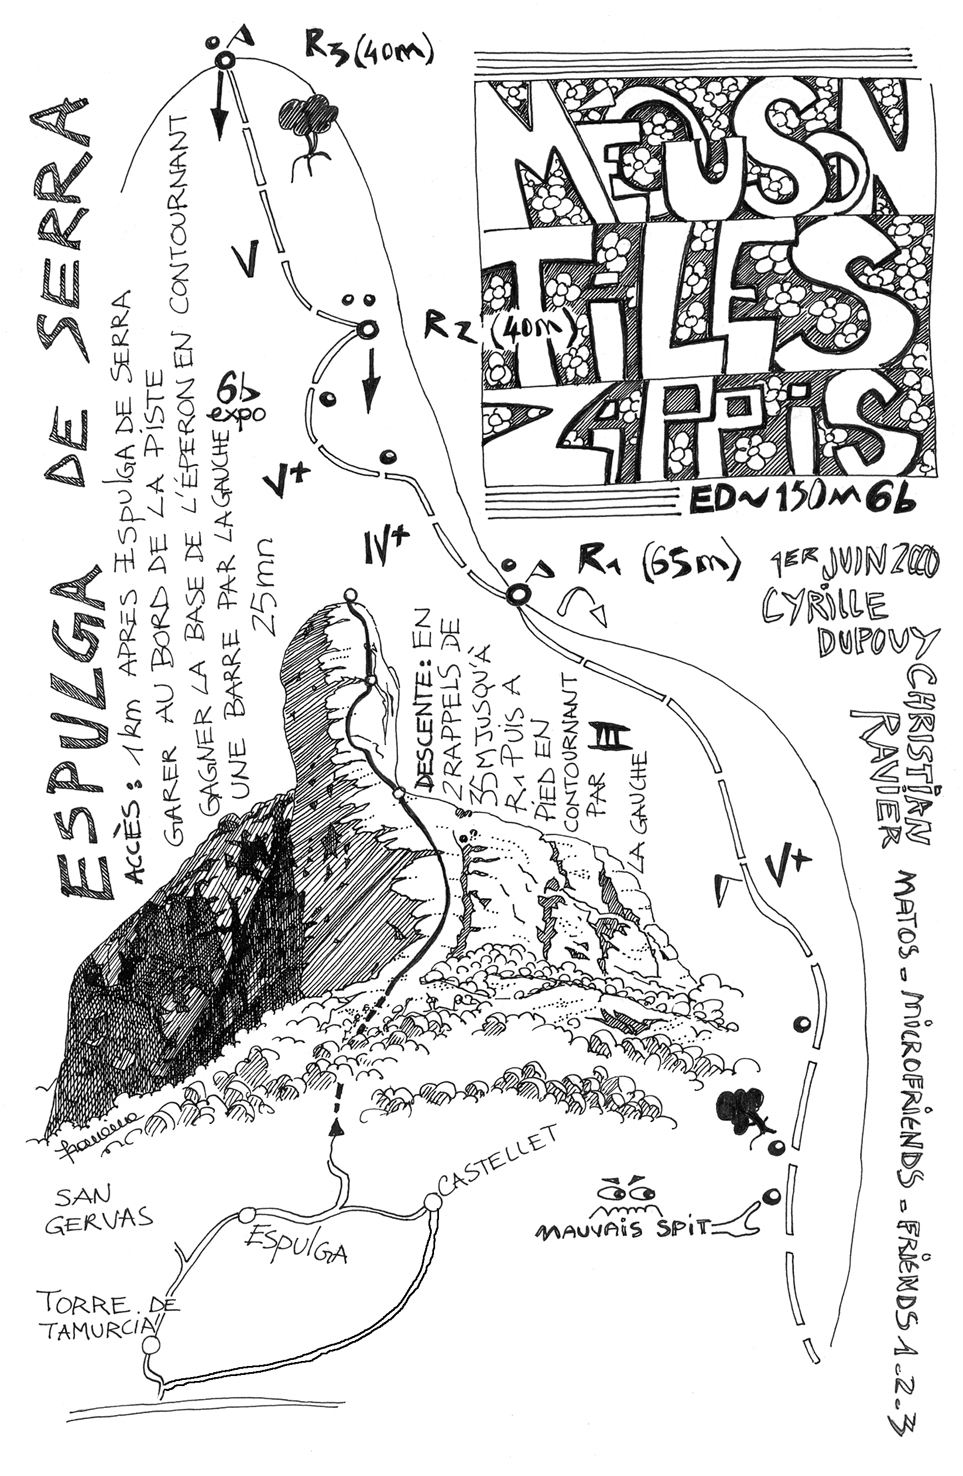 ESPULGA DE SERRA
ACCÈS: 1km APRES ESPULGA DE SERRA
GARER AU BORD DE LA PISTE
GAGNER LA BASE DE L'ÉPERON EN CONTOURNANT
UNE BARRE PAR LA GAUCHE
25mn
R3 (40m)
V
R2 (40m)
6b
expo
V+
IV+
R1 (65m)
MEQUSON
TiLES
ZAPPiS
ED~150m 6b
1ER JUIN 2000
CYRILLE
DUPOUY
CHRISTIAN
RAVIER
MATOS - MICROFRIENDS - FRIENDS 1-2-3
DESCENTE: EN
2 RAPPELS DE
35M JUSQU'À
R1 PUIS A
PIED EN
CONTOURNANT
PAR
LA GAUCHE
III
V+
MAUVAIS SPIT
SAN
GERVAS
ESPULGA
CASTELLET
TORRE. DE
TAMURCIA